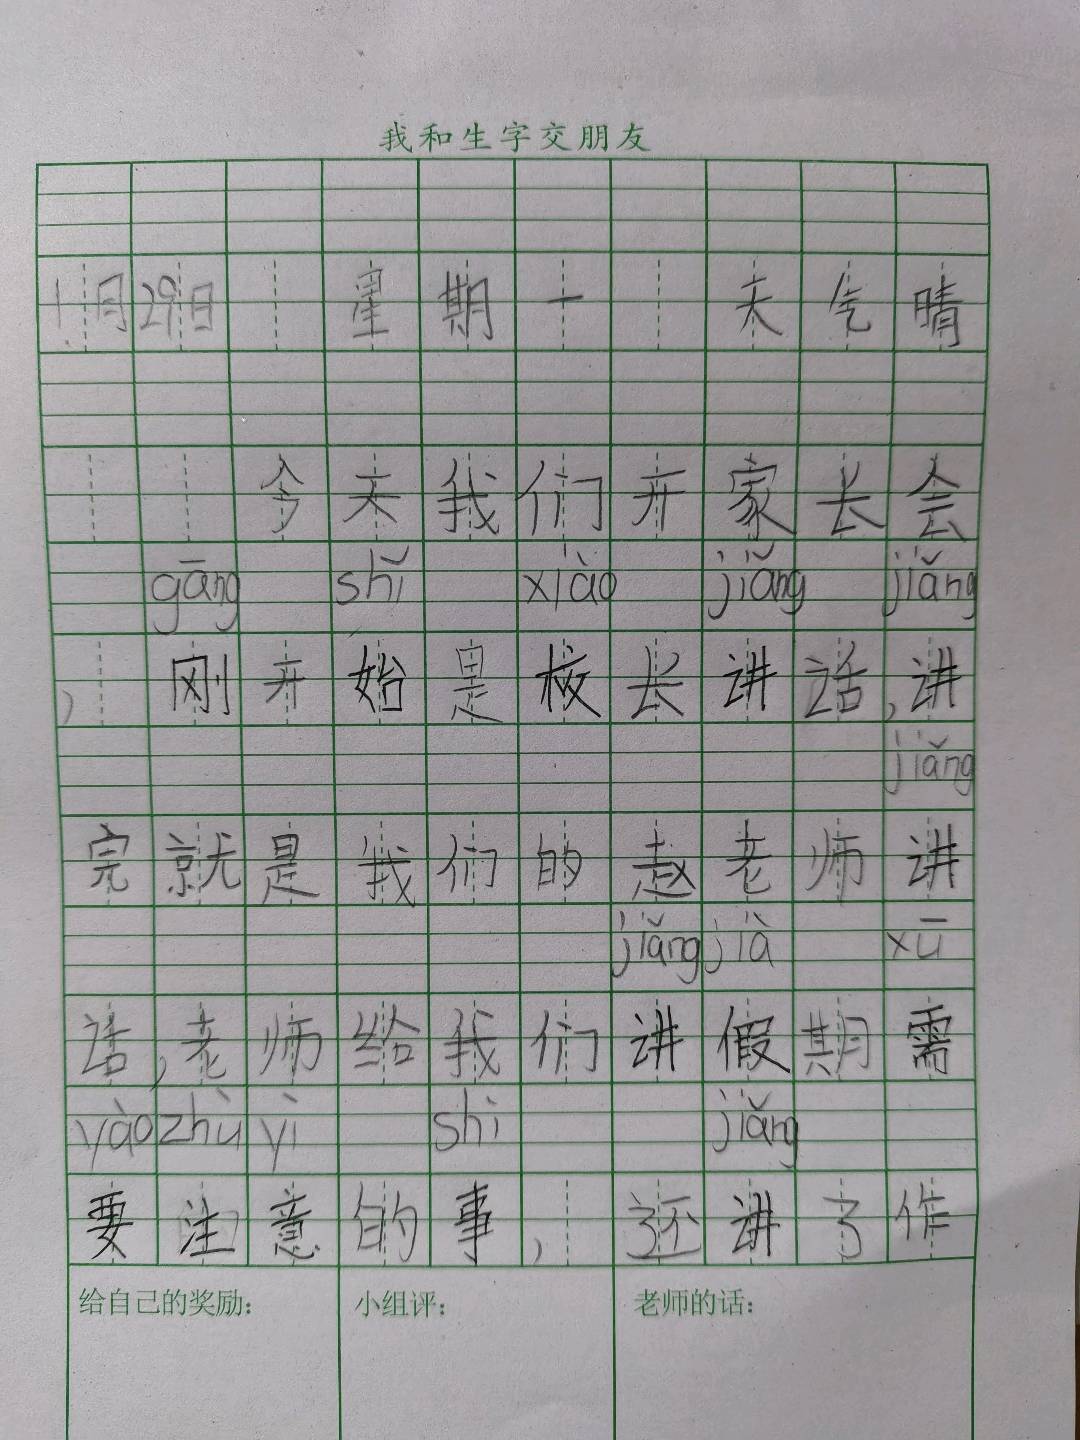 我和生字交朋友
十月29日 星期一 天气晴
今天我们开家长会
gāng shǐ xiào jiǎng jiǎng
，刚开始是校长讲话，讲
jiǎng
完就是我们的赵老师讲
jiǎng jià xū
话，老师给我们讲假期需
yào zhù yì shì jiǎng
要注意的事，还讲了作
给自己的奖励： 小组评： 老师的话：